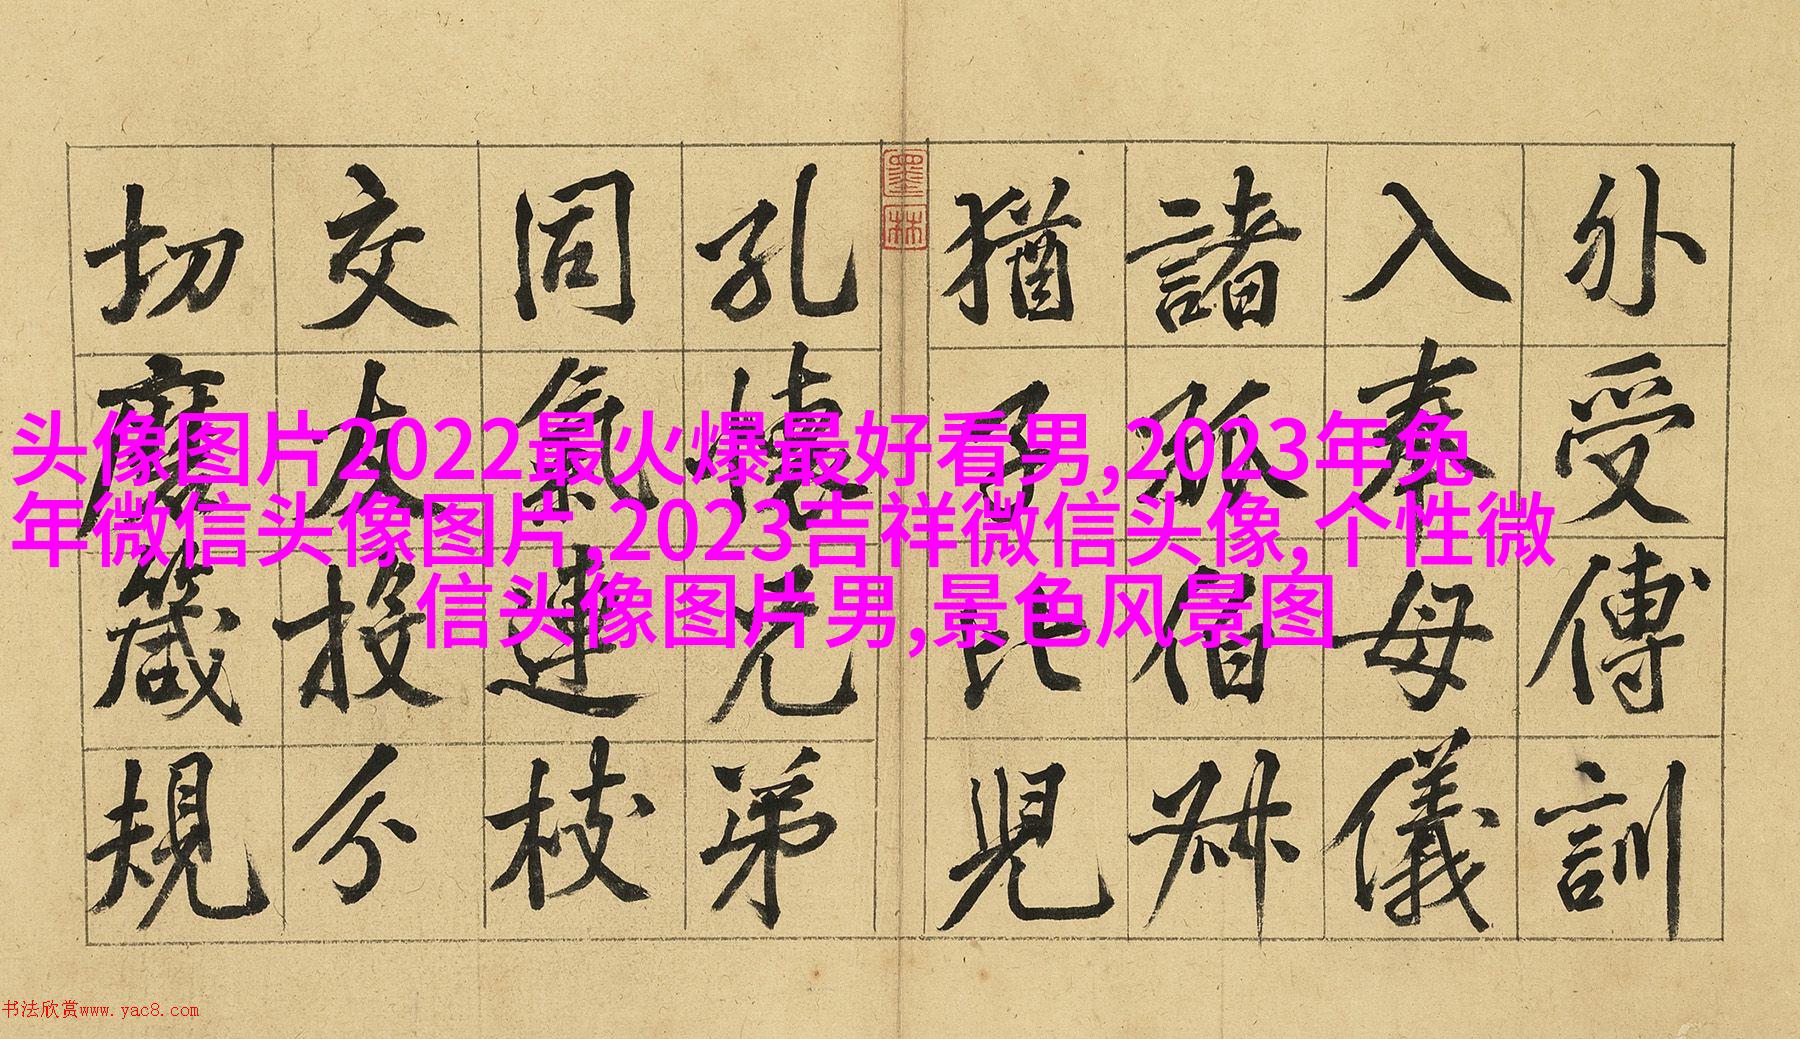 外受傅訓
入奉母儀
諸姑伯叔
猶子比兒
孔懷兄弟
同氣連枝
交友投分
切磨箴規
墨林
头像图片2022最火爆最好看男,2023年兔
年微信头像图片,2023吉祥微信头像,个性微
信头像图片男,景色风景图
书法欣赏www.yac8.com